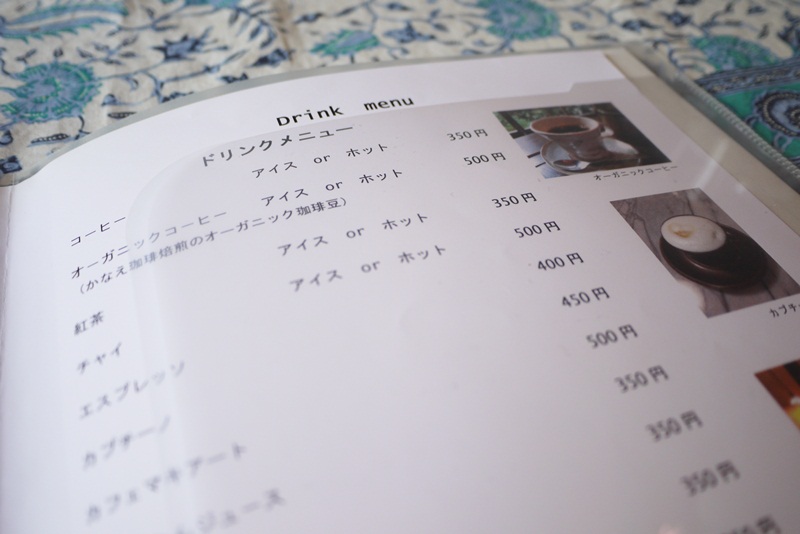 Drink menu
ドリンクメニュー
コーヒー アイス or ホット 350円
オーガニックコーヒー アイス or ホット 500円
（かなえ珈琲焙煎のオーガニック珈琲豆）
紅茶 アイス or ホット 350円
チャイ アイス or ホット 500円
エスプレッソ 400円
カプチーノ 450円
カフェマキアート 500円
ジュース 350円
350円
350円
オーガニックコーヒー
カプチ